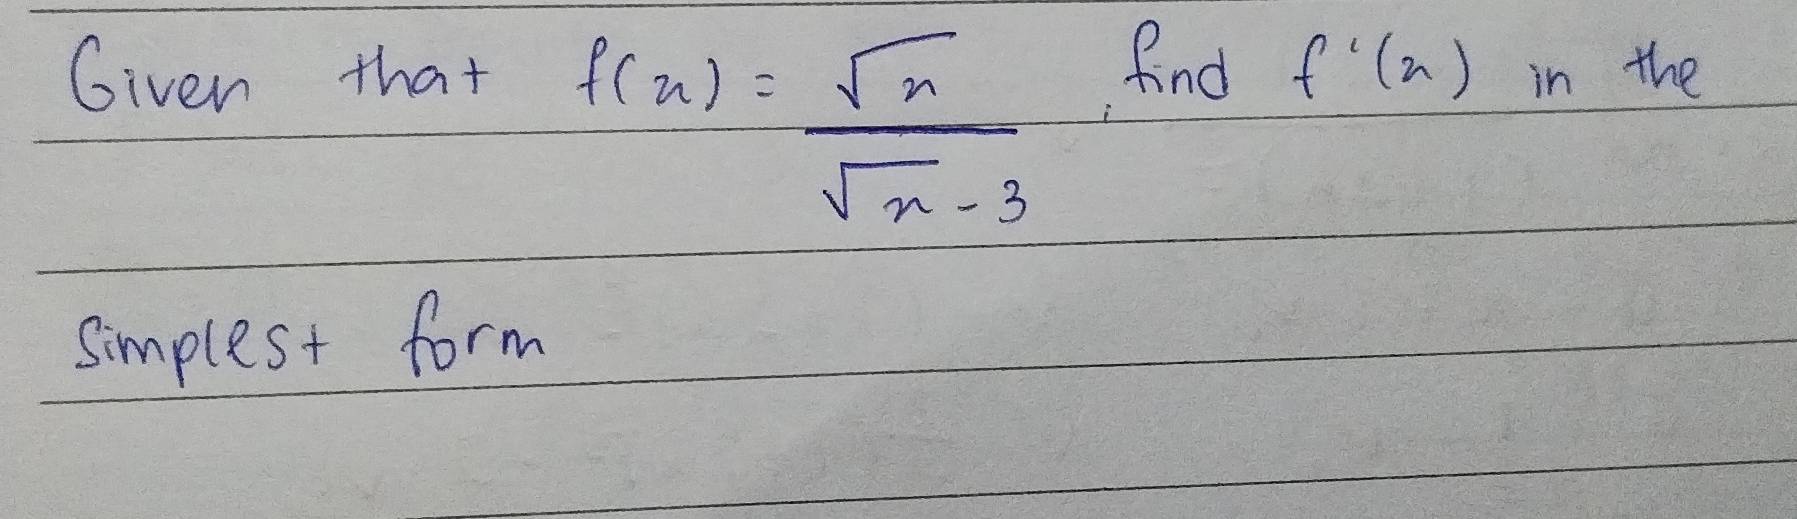 Given that f(x) = √x / √x - 3, find f'(x) in the
simplest form